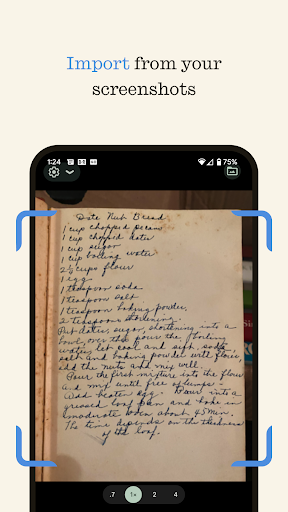 Import from your
screenshots
1:24
75%
Date Nut Bread
1 cup chopped pecans
1 cup chopped dates
1 cup sugar
1 cup boiling water
2½ cups flour
1 egg
1 teaspoon soda
1 teaspoon salt
1 teaspoon baking powder,
2 teaspoons shortening.
Put dates, sugar, shortening into a
bowl, over this pour the boiling
water, let cool and sift soda,
salt and baking powder with flour,
add the nuts and mix well.
Pour the first mixture into the flour
and mix until free of lumps-
Add beaten egg. Pour into a
greased loaf pan and bake in
moderate oven about 45 min.
The time depends on the thickness
of the loaf.
.7 1x 2 4